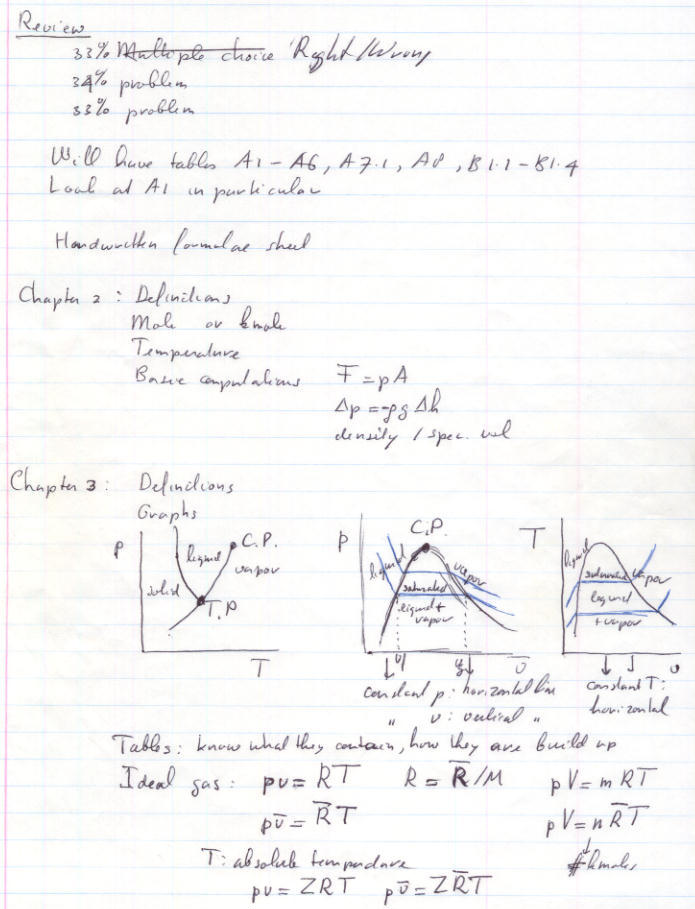 Review
33% Multiple choice Right/Wrong
34% problem
33% problem
Will have tables A1 - A6, A7.1, A8, B1.1 - B1.4
Look at A1 in particular
Handwritten formulae sheet
Chapter 2 : Definitions
Mole or kmole
Temperature
Basic computations F = pA
Δp = -ρg Δh
density / spec. vol
Chapter 3 : Definitions
Graphs
P solid liquid C.P. vapor T.P T
p C.P. liquid vapor saturated liquid + vapor v
T liquid saturated vapor liquid + vapor v
constant p : horizontal line
" v : vertical "
constant T : horizontal
Tables : know what they contain, how they are build up
Ideal gas : pv = RT R = R̅/M pV = m RT
pv̅ = R̅T pV = n R̅T
T : absolute temperature # kmoles
pv = ZRT pv̅ = ZR̅T